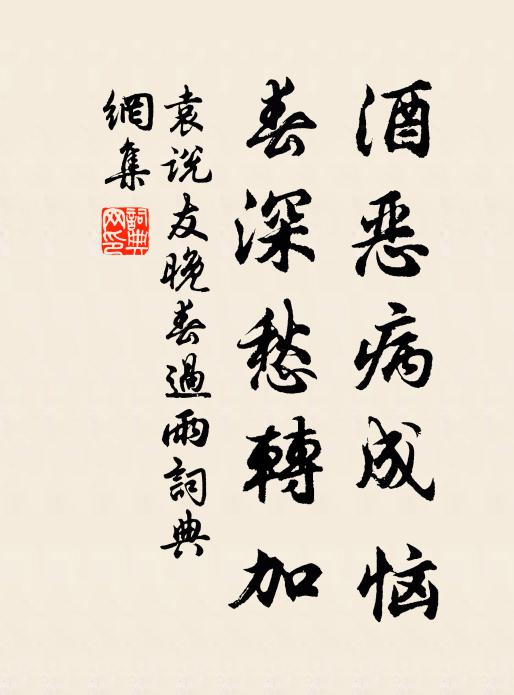 酒恶病成恼
春深愁轉加
袁说友晚春過雨詞典
網集
詞典
网印